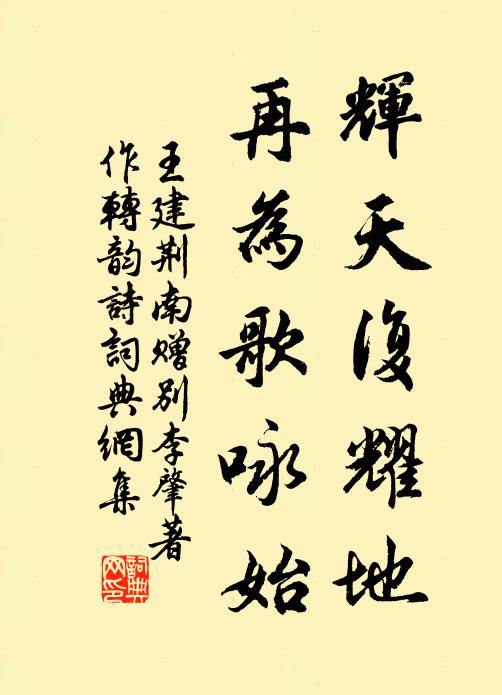 輝天復耀地
再為歌咏始
王建荆南贈別李肇著
作轉韵詩詞典網集
詞典
网印